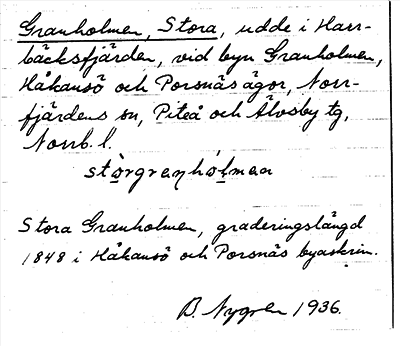 Granholmen, Stora, udde i Harr-
bäcksfjärden, vid byn Granholmen,
Håkansö och Porsnäs ägor, Norr-
fjärdens sn, Piteå och Älvsby tg,
Norrb. l.
stòrgrenhólmen
Stora Granholmen, graderingslängd
1848 i Håkansö och Porsnäs byaskrin.
B. Nygren 1936.